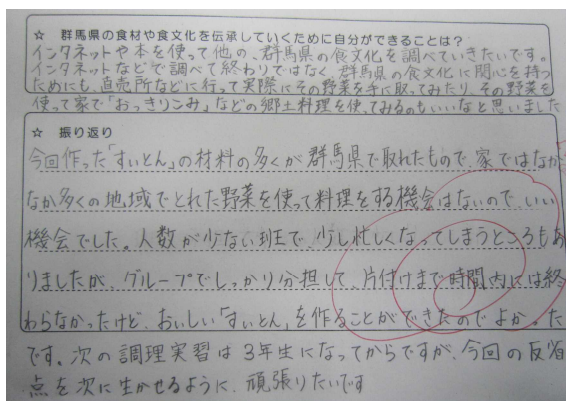 ☆ 群馬県の食材や食文化を伝承していくために自分ができることは？
インタネットや本を使って他の、群馬県の食文化を調べていきたいです。
インタネットなどで調べて終わりではなく、群馬県の食文化に関心を持つ
ためにも、直売所などに行って実際にその野菜を手に取ってみたり、その野菜を
使って家で「おっきりこみ」などの郷土料理を使ってみるのもいいなと思いました
☆ 振り返り
今回作った「すいとん」の材料の多くが群馬県で取れたもので、家ではなか
なか多くの地域でとれた野菜を使って料理をする機会はないので、いい
機会でした。人数が少ない班で、少し忙しくなってしまうところもあ
りましたが、グループでしっかり分担して、片付けまで時間内には終
わらなかったけど、おいしい「すいとん」を作ることができたのでよかった
です。次の調理実習は3年生になってからですが、今回の反省
点を次に生かせるように、頑張りたいです